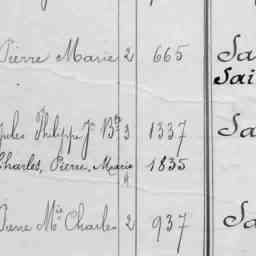 Pierre Marie 2 665 Sa
Sai
Jules Philippe Jn Bte 3 1337 Sa
Charles, Pierre, Marie 4 1835
Pierre Mie Charles 2 937 Sa